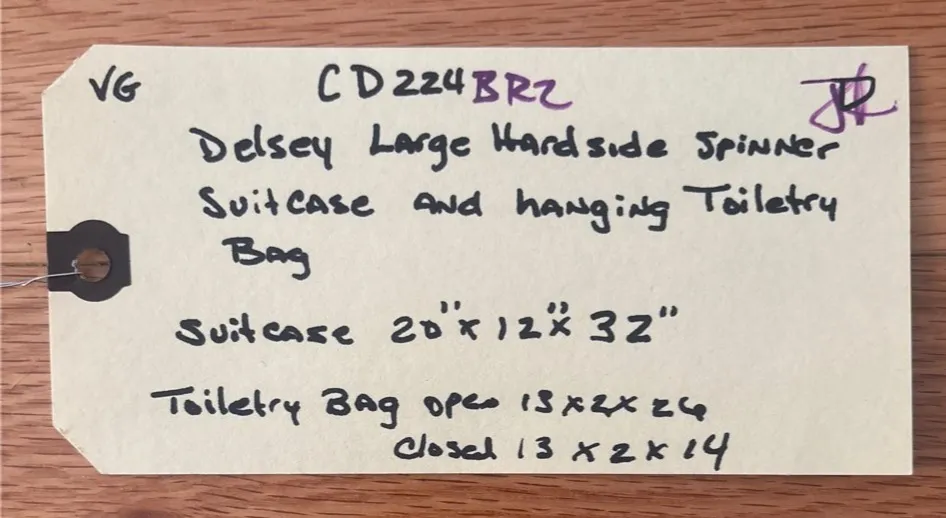 VG CD224BR2
Delsey Large Hardside Spinner
Suitcase and hanging Toiletry
Bag
Suitcase 20" x 12" x 32"
Toiletry Bag open 13 x 2 x 26
Closed 13 x 2 x 14